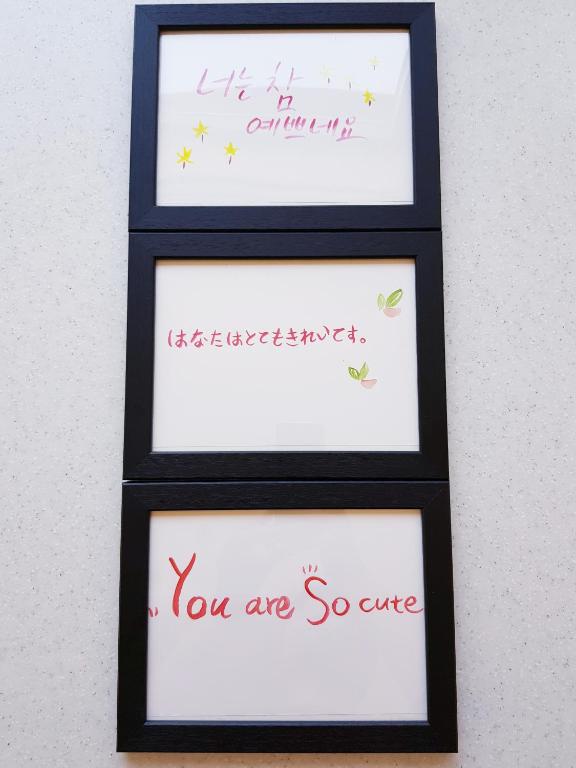 너는 참
예쁘네요
はなたはとてもきれいてす。
You are So cute